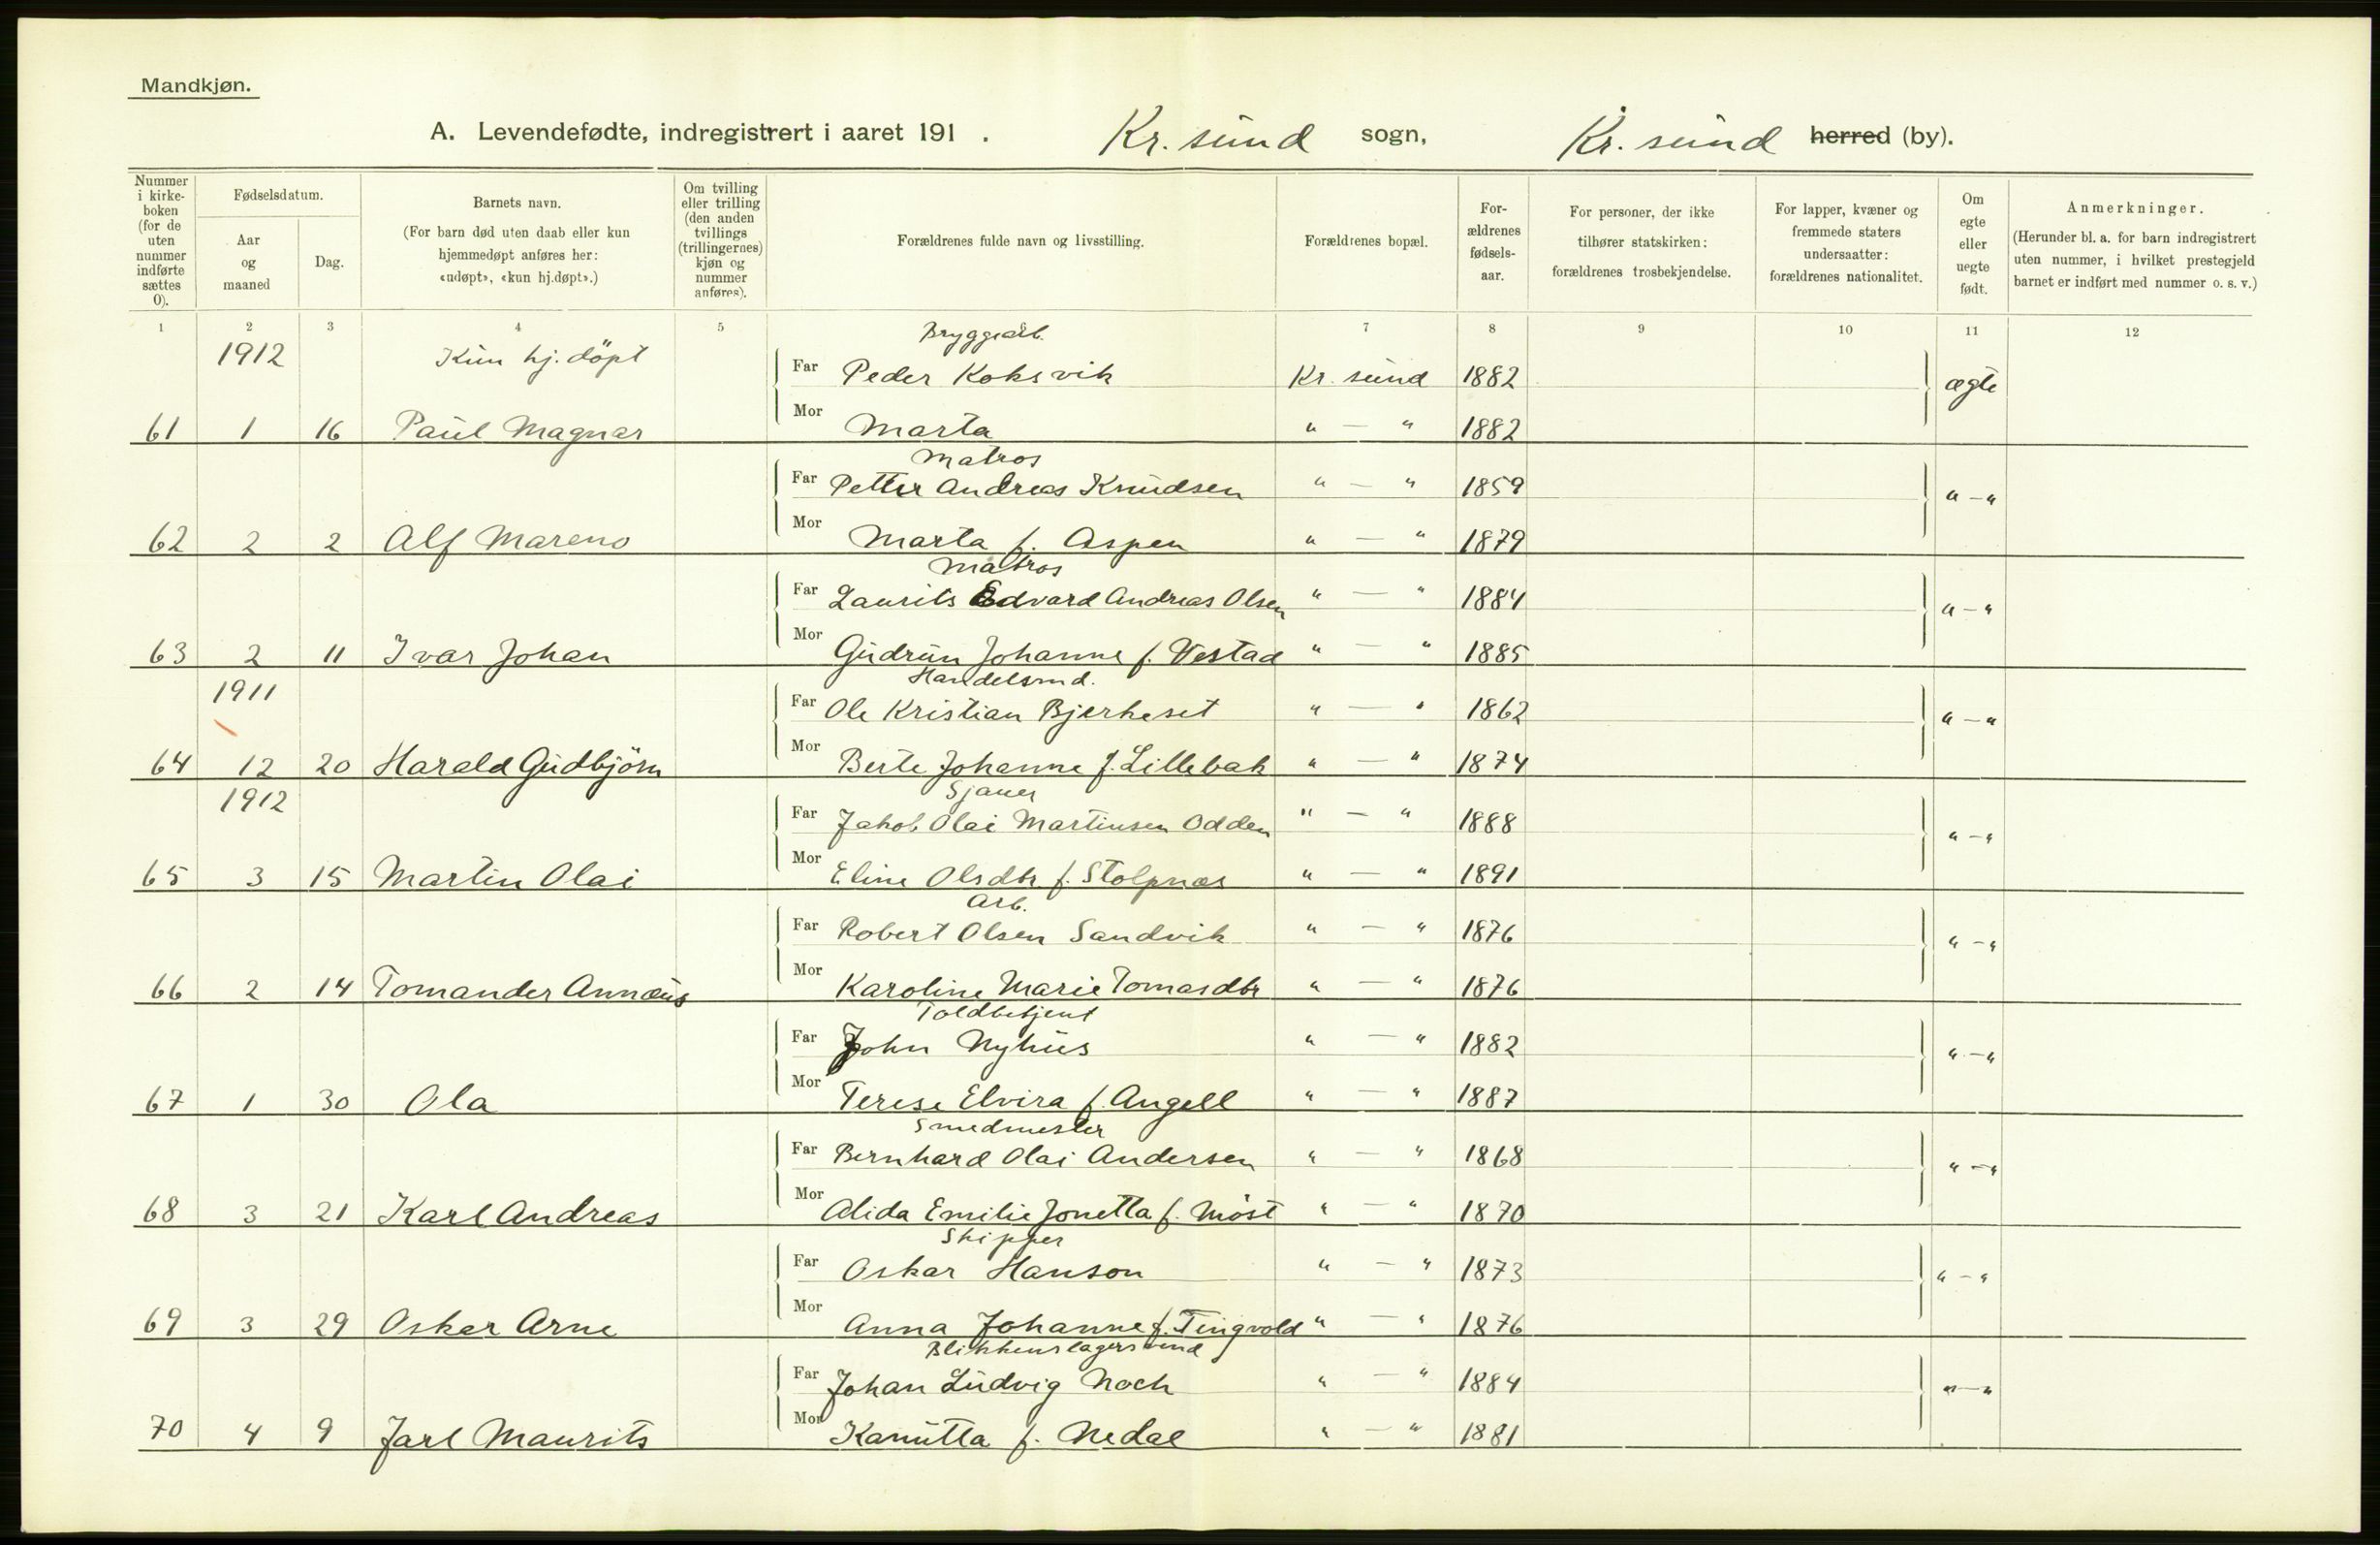 Mandkjøn.
A. Levendefødte, indregistrert i aaret 191 . Kr. sund sogn, Kr. sund herred (by).
Nummer i kirke-boken (for de uten nummer indførte sættes 0).
Fødselsdatum.
Aar og maaned
Dag.
Barnets navn.
(For barn død uten daab eller kun hjemmedøpt anføres her: «udøpt», «kun hj.døpt».)
Om tvilling eller trilling (den anden tvillings (trillingernes) kjøn og nummer anføres).
Forældrenes fulde navn og livsstilling.
Forældrenes bopæl.
For-ældrenes fødsels-aar.
For personer, der ikke tilhører statskirken: forældrenes trosbekjendelse.
For lapper, kvæner og fremmede staters undersaatter: forældrenes nationalitet.
Om egte eller uegte født.
Anmerkninger.
(Herunder bl. a. for barn indregistrert uten nummer, i hvilket prestegjeld barnet er indført med nummer o. s. v.)
1 2 3 4 5 7 8 9 10 11 12
1912 Kun hj. döpt Bryggearb.
Far Peder Koksvik Kr. sund 1882 ægte
61 1 16 Paul Magnar Mor Marta " — " 1882
Matros
Far Petter Andreas Knudsen " — " 1859 " — "
62 2 2 Alf Mareno Mor Marta f. Aspen " — " 1879
Matros
Far Laurits Edvard Andreas Olsen " — " 1884 " — "
63 2 11 Ivar Johan Mor Gudrun Johanne f. Vestad " — " 1885
1911 Handelsmd.
Far Ole Kristian Bjerkeset " — " 1862 " — "
64 12 20 Harald Gudbjörn Mor Berte Johanne f. Lillebak " — " 1874
1912 Sjauer
Far Jakob Olai Martinsen Odden " — " 1888 " — "
65 3 15 Martin Olai Mor Eline Olsdtr f. Stolpnæs " — " 1891
Arb.
Far Robert Olsen Sandvik " — " 1876 " — "
66 2 14 Tomander Annæus Mor Karoline Marie Tomasdtr " — " 1876
Toldbetjent
Far John Nyhus " — " 1882 " — "
67 1 30 Ola Mor Terese Elvira f. Angell " — " 1887
Smedmester
Far Bernhard Olai Andersen " — " 1868 " — "
68 3 21 Karl Andreas Mor Alida Emilie Jonetta f. Möst " — " 1870
Skipper
Far Oskar Hanson " — " 1873 " — "
69 3 29 Oskar Arne Mor Anna Johanne f. Tingvold " — " 1876
Blikkenslagersvend
Far Johan Ludvig Noch " — " 1884 " — "
70 4 9 Jarl Maurits Mor Kanutta f. Nedal " — " 1881